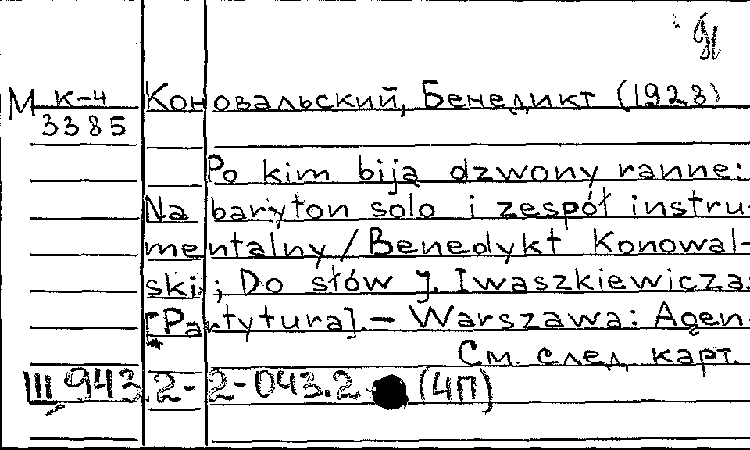 М К-4 Коновальский, Бенедикт (1928)
3385
Po kim biją dzwony ranne:
Na baryton solo i zespół instru-
mentalny / Benedykt Konowal-
ski; Do słów J. Iwaszkiewicza:
[Partytura]. — Warszawa: Agen-
См. след. карт.
Ш 943.2-2-043.2 (4П)